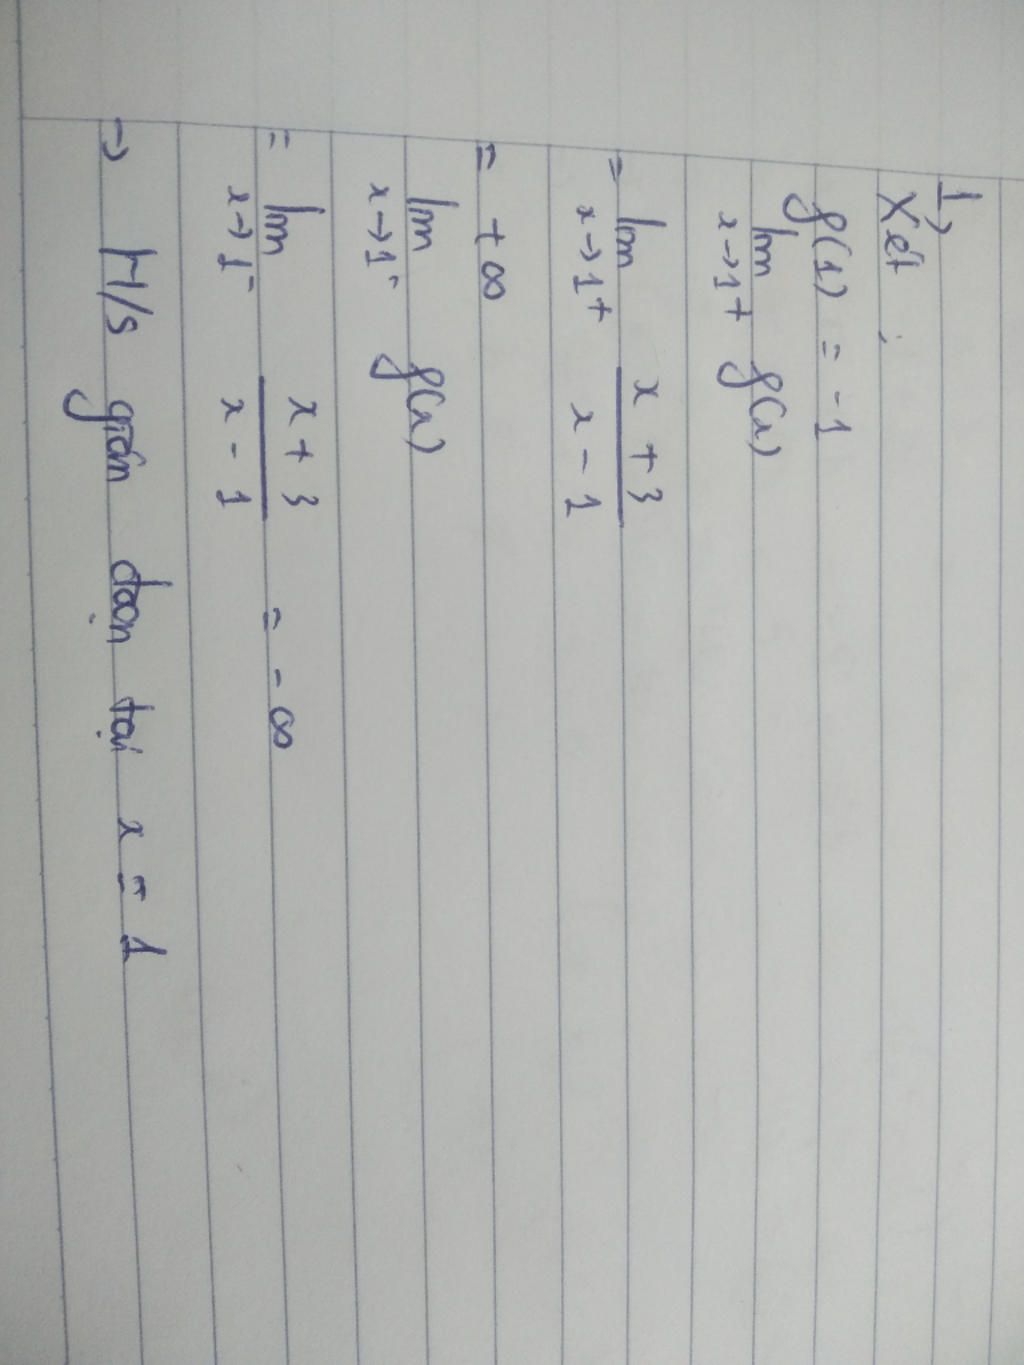 1)
Xét :
f(1) = -1
lim x→1+ f(x)
= lim x→1+ x + 3 / x - 1
= +∞
lim x→1- f(x)
= lim x→1- x + 3 / x - 1 = -∞
→ H/s gián đoạn tại x = 1